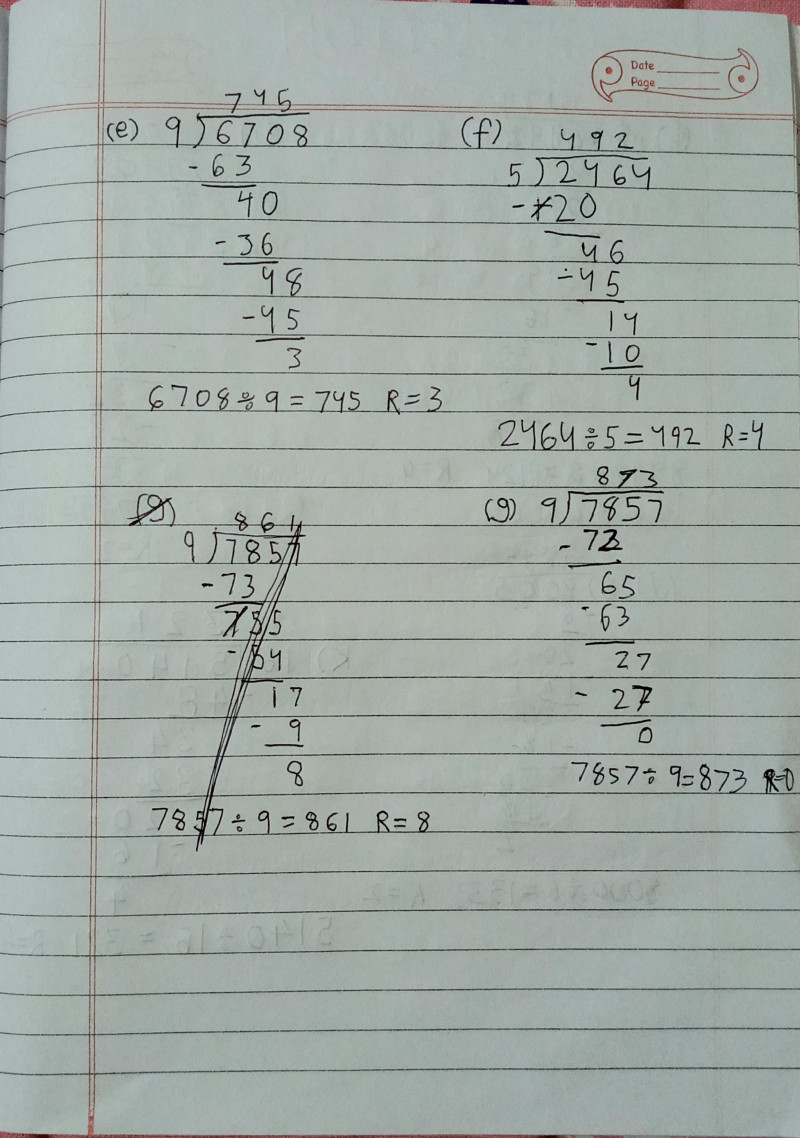 Date
Page
(e) 745
9)6708
-63
40
-36
48
-45
3
6708÷9=745 R=3
(f) 492
5)2464
-20
46
-45
14
-10
4
2464÷5=492 R=4
(g) 861
9)7857
-73
55
-54
17
-9
8
7857÷9=861 R=8
(g) 873
9)7857
-72
65
-63
27
-27
0
7857÷9=873 R=0